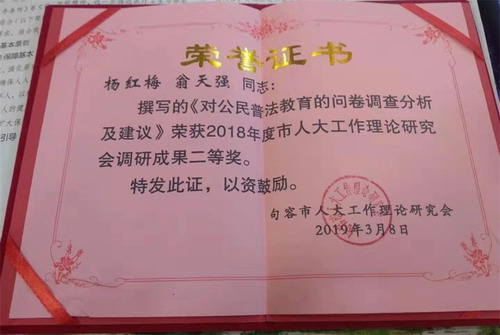 荣誉证书
杨红梅 翁天强 同志:
撰写的《对公民普法教育的问卷调查分析
及建议》荣获2018年度市人大工作理论研究
会调研成果二等奖。
特发此证，以资鼓励。
句容市人大工作理论研究会
2019年3月8日